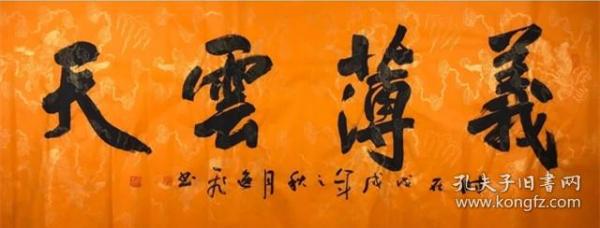 義薄雲天
戊戌年之秋月逸飞书
孔夫子旧书网
www.kongfz.com